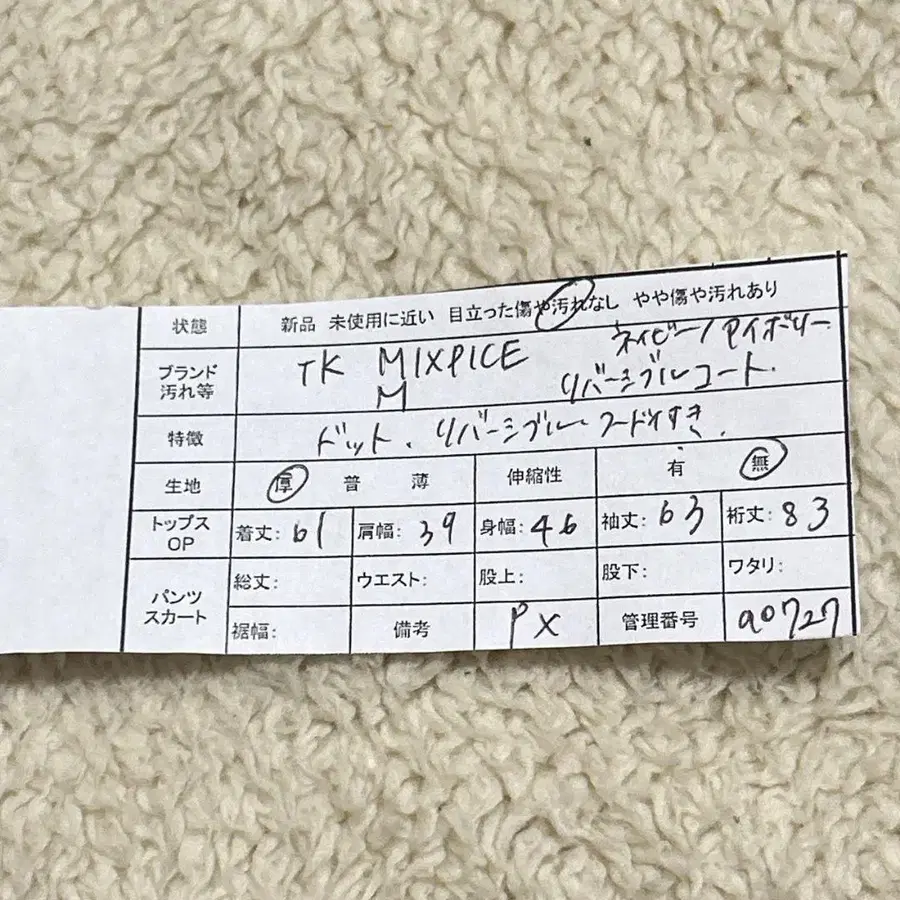 状態 新品 未使用に近い 目立った傷や汚れなし やや傷や汚れあり
ブランド 汚れ等 TK MIXPICE ネイビー/アイボリー
M リバーシブルコート.
特徴 ドット、リバーシブル、フード付き.
生地 厚 普 薄 伸縮性 有 無
トップス OP 着丈: 61 肩幅: 39 身幅: 46 袖丈: 63 裄丈: 83
パンツ スカート 総丈: ウエスト: 股上: 股下: ワタリ:
裾幅: 備考 PX 管理番号 a0727